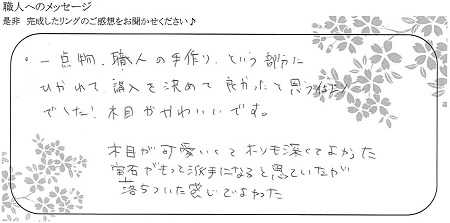 職人へのメッセージ
是非 完成したリングのご感想をお聞かせください♪
・一点物、職人の手作り、という部分に
ひかれて、購入を決めて良かったと思う
でした！木目がかわいいです。
木目が可愛いくて ホリも深くてよかった
宝石がもっと派手になると思っていたが
落ちついた感じでよかった